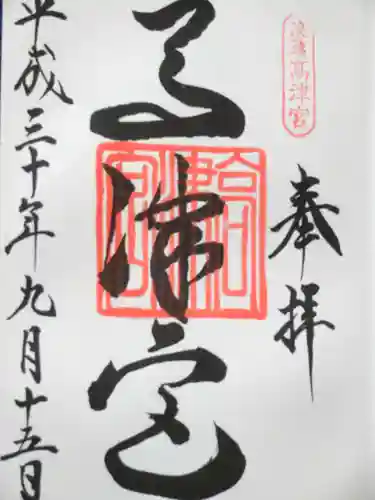 浪速高津宮
奉拝
高津宮
高津宮
平成三十年九月十五日